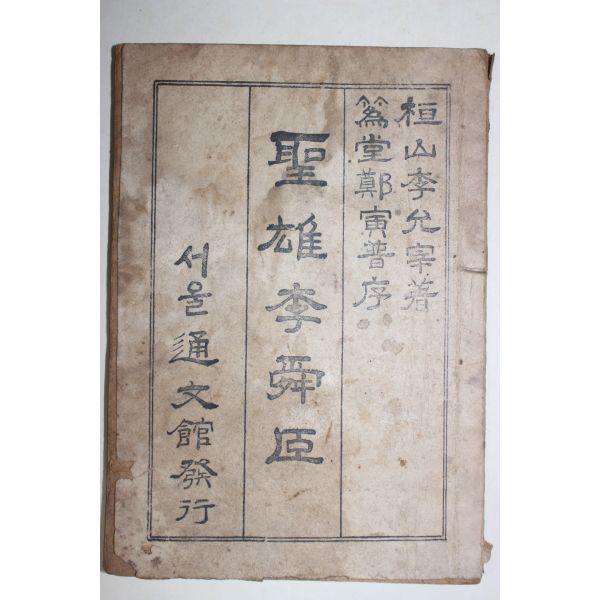 桓山李允宰著
爲堂鄭寅普序
聖雄李舜臣
서울通文館發行